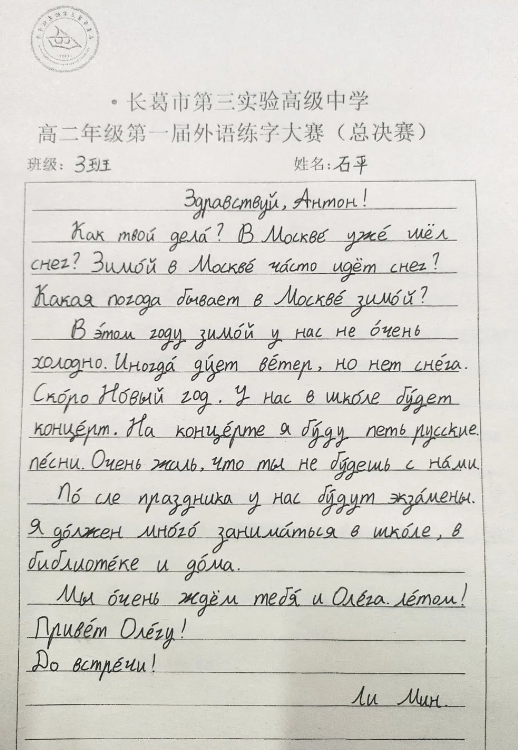 ·长葛市第三实验高级中学
高二年级第一届外语练字大赛（总决赛）
班级：3班 姓名：石平
Здравствуй, Антон!
Как твой дела́? В Москве́ уже́ шёл
снег? Зимо́й в Москве́ ча́сто идёт снег?
Какая погода бывает в Москве́ зимо́й?
В э́том году зимо́й у нас не о́чень
холодно. Иногда́ ду́ет ве́тер, но нет сне́га.
Ско́ро Но́вый год. У нас в шко́ле бу́дет
конце́рт. На конце́рте я бу́ду петь русские
пе́сни. Очень жаль, что ты не бу́дешь с на́ми
По́ сле праздника у нас бу́дут экза́мены.
Я до́лжен мно́го́ занима́ться в шко́ле, в
библиоте́ке и до́ма.
Мы о́чень ждём тебя́ и Оле́га. ле́том!
Приве́т Оле́гу!
До встре́чи!
Ли Мин.